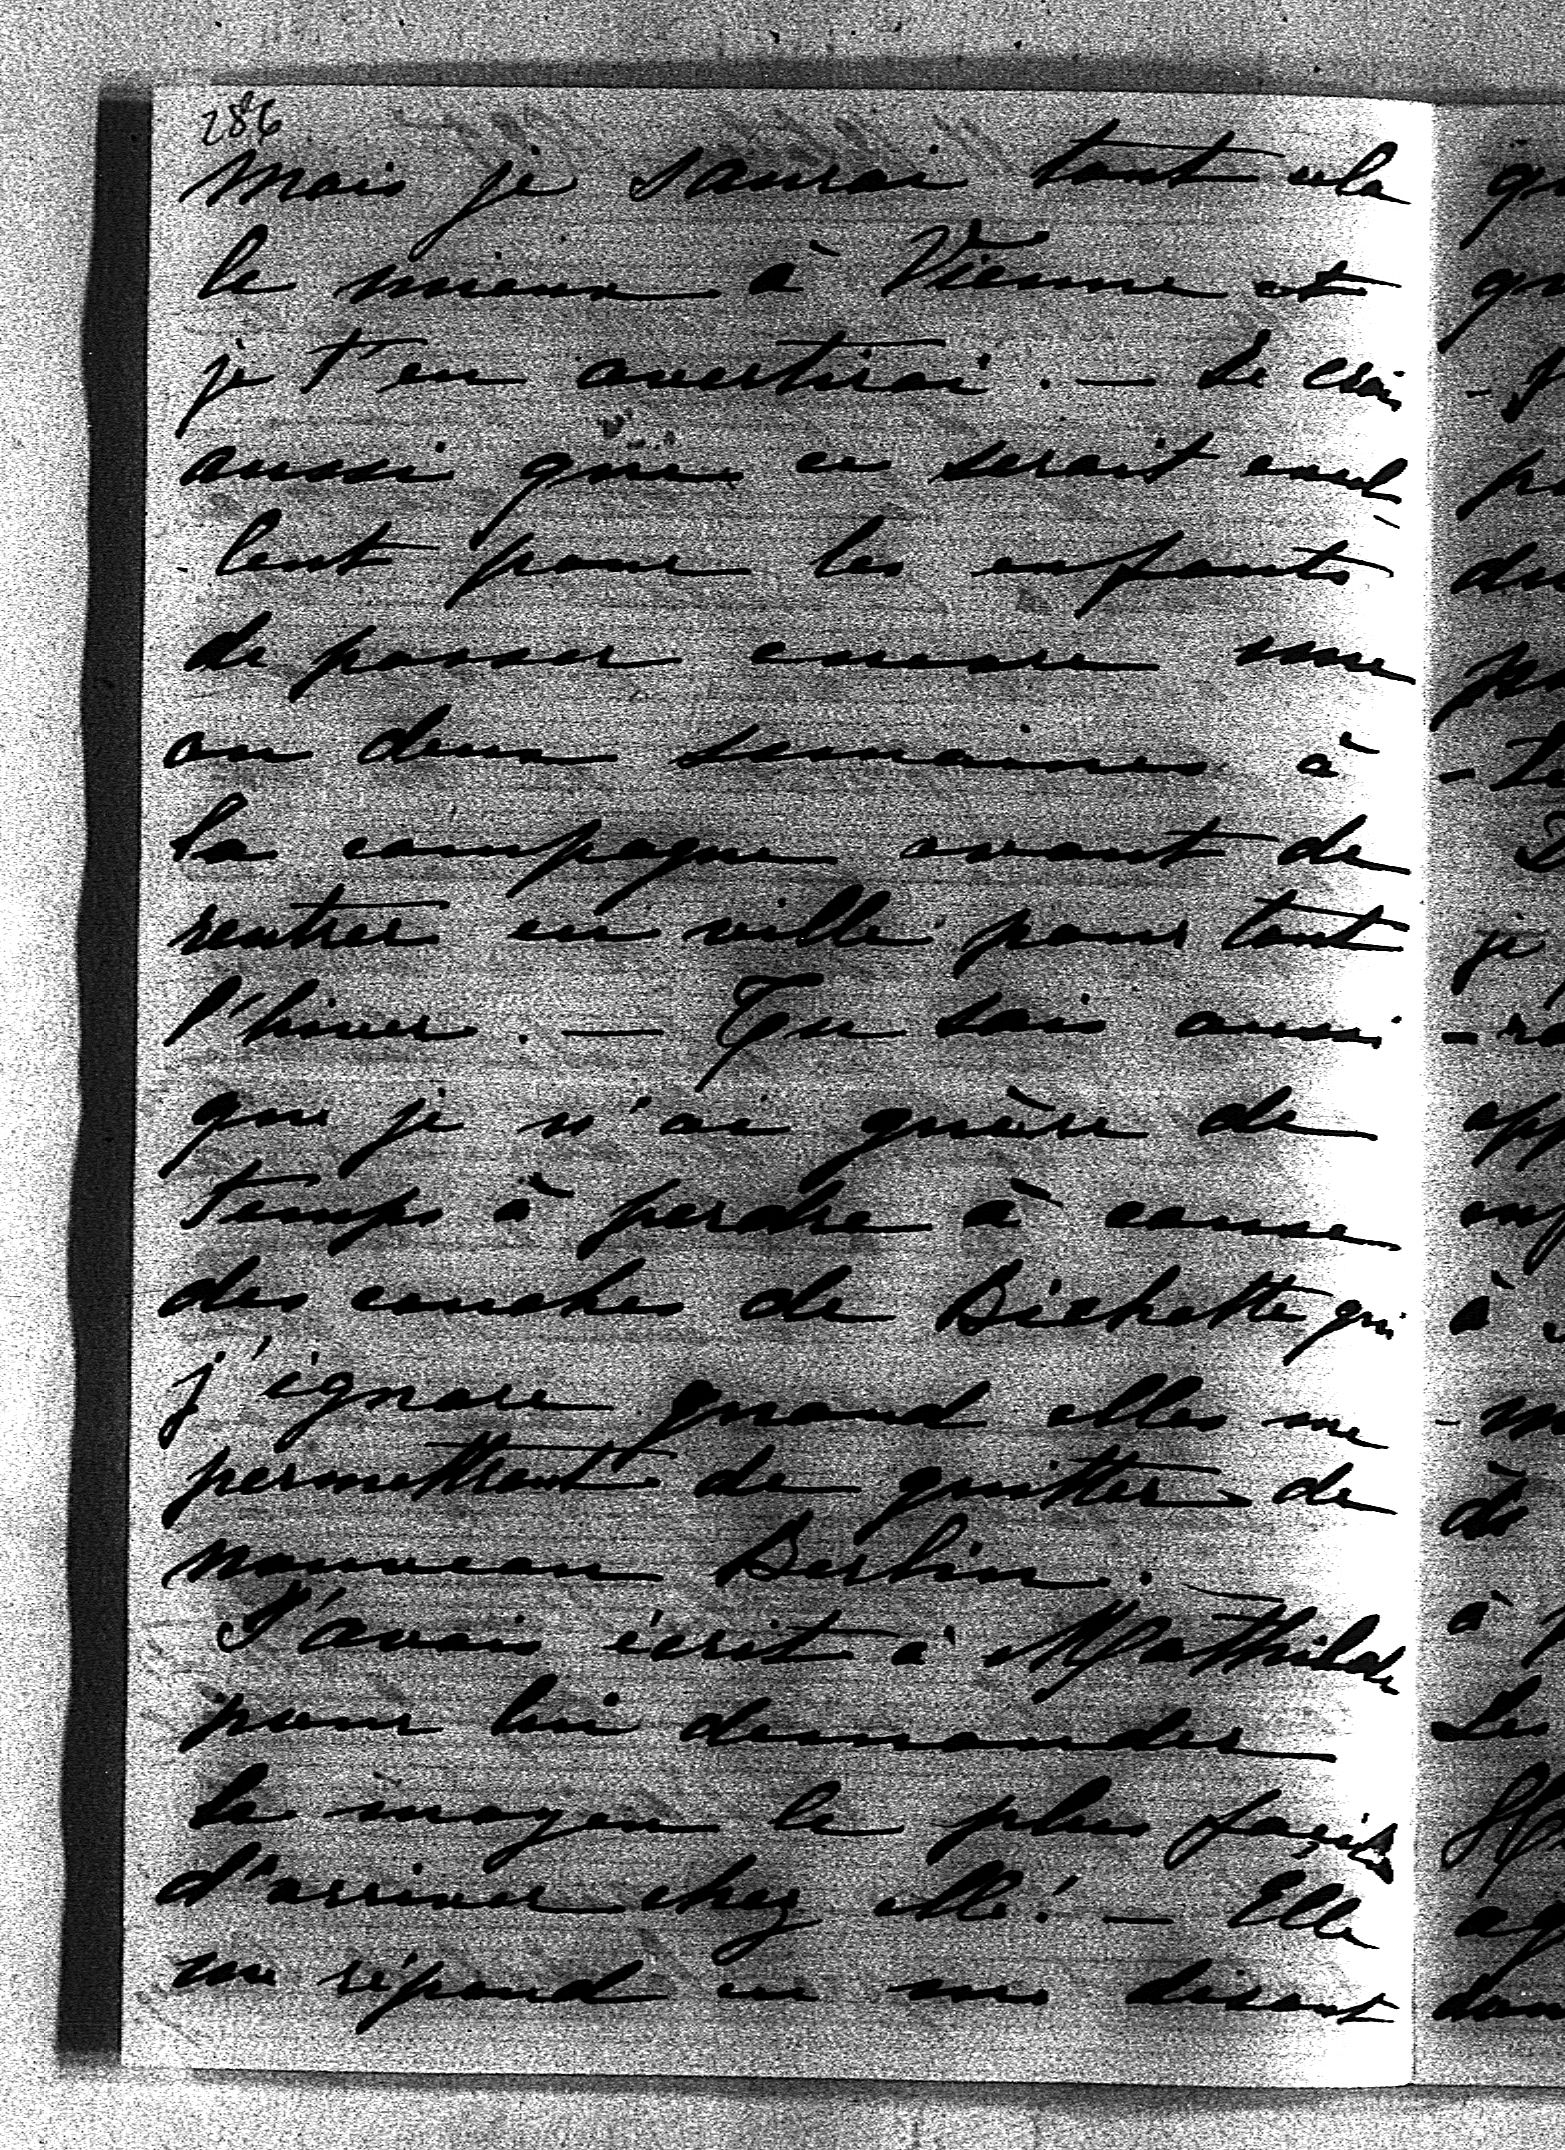 286
mais je saurai tout cela
le mieux à Vienne et
je t'en avertirai. — Je crois
aussi que ce serait excel
- lent pour les enfants
de passer encore une
ou deux semaines à
la campagne avant de
rentrer en ville pour tout
l'hiver. — Tu sais aussi
que je n'ai guère de
temps à perdre à cause
des couches de Bichette qui
j'ignore quand elles me
permettront de quitter de
nouveau Berlin.
J'avais écrit à Mathilde
pour lui demander
le moyen le plus facile
d'arriver chez elle! — Elle
me répond en me disant